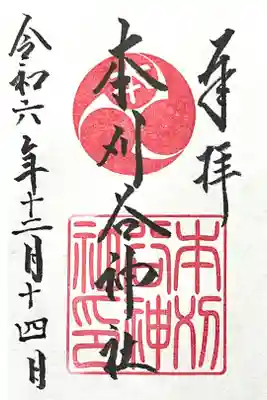 奉拝
本刈谷神社
令和六年十二月十四日
本刈
谷神
社印